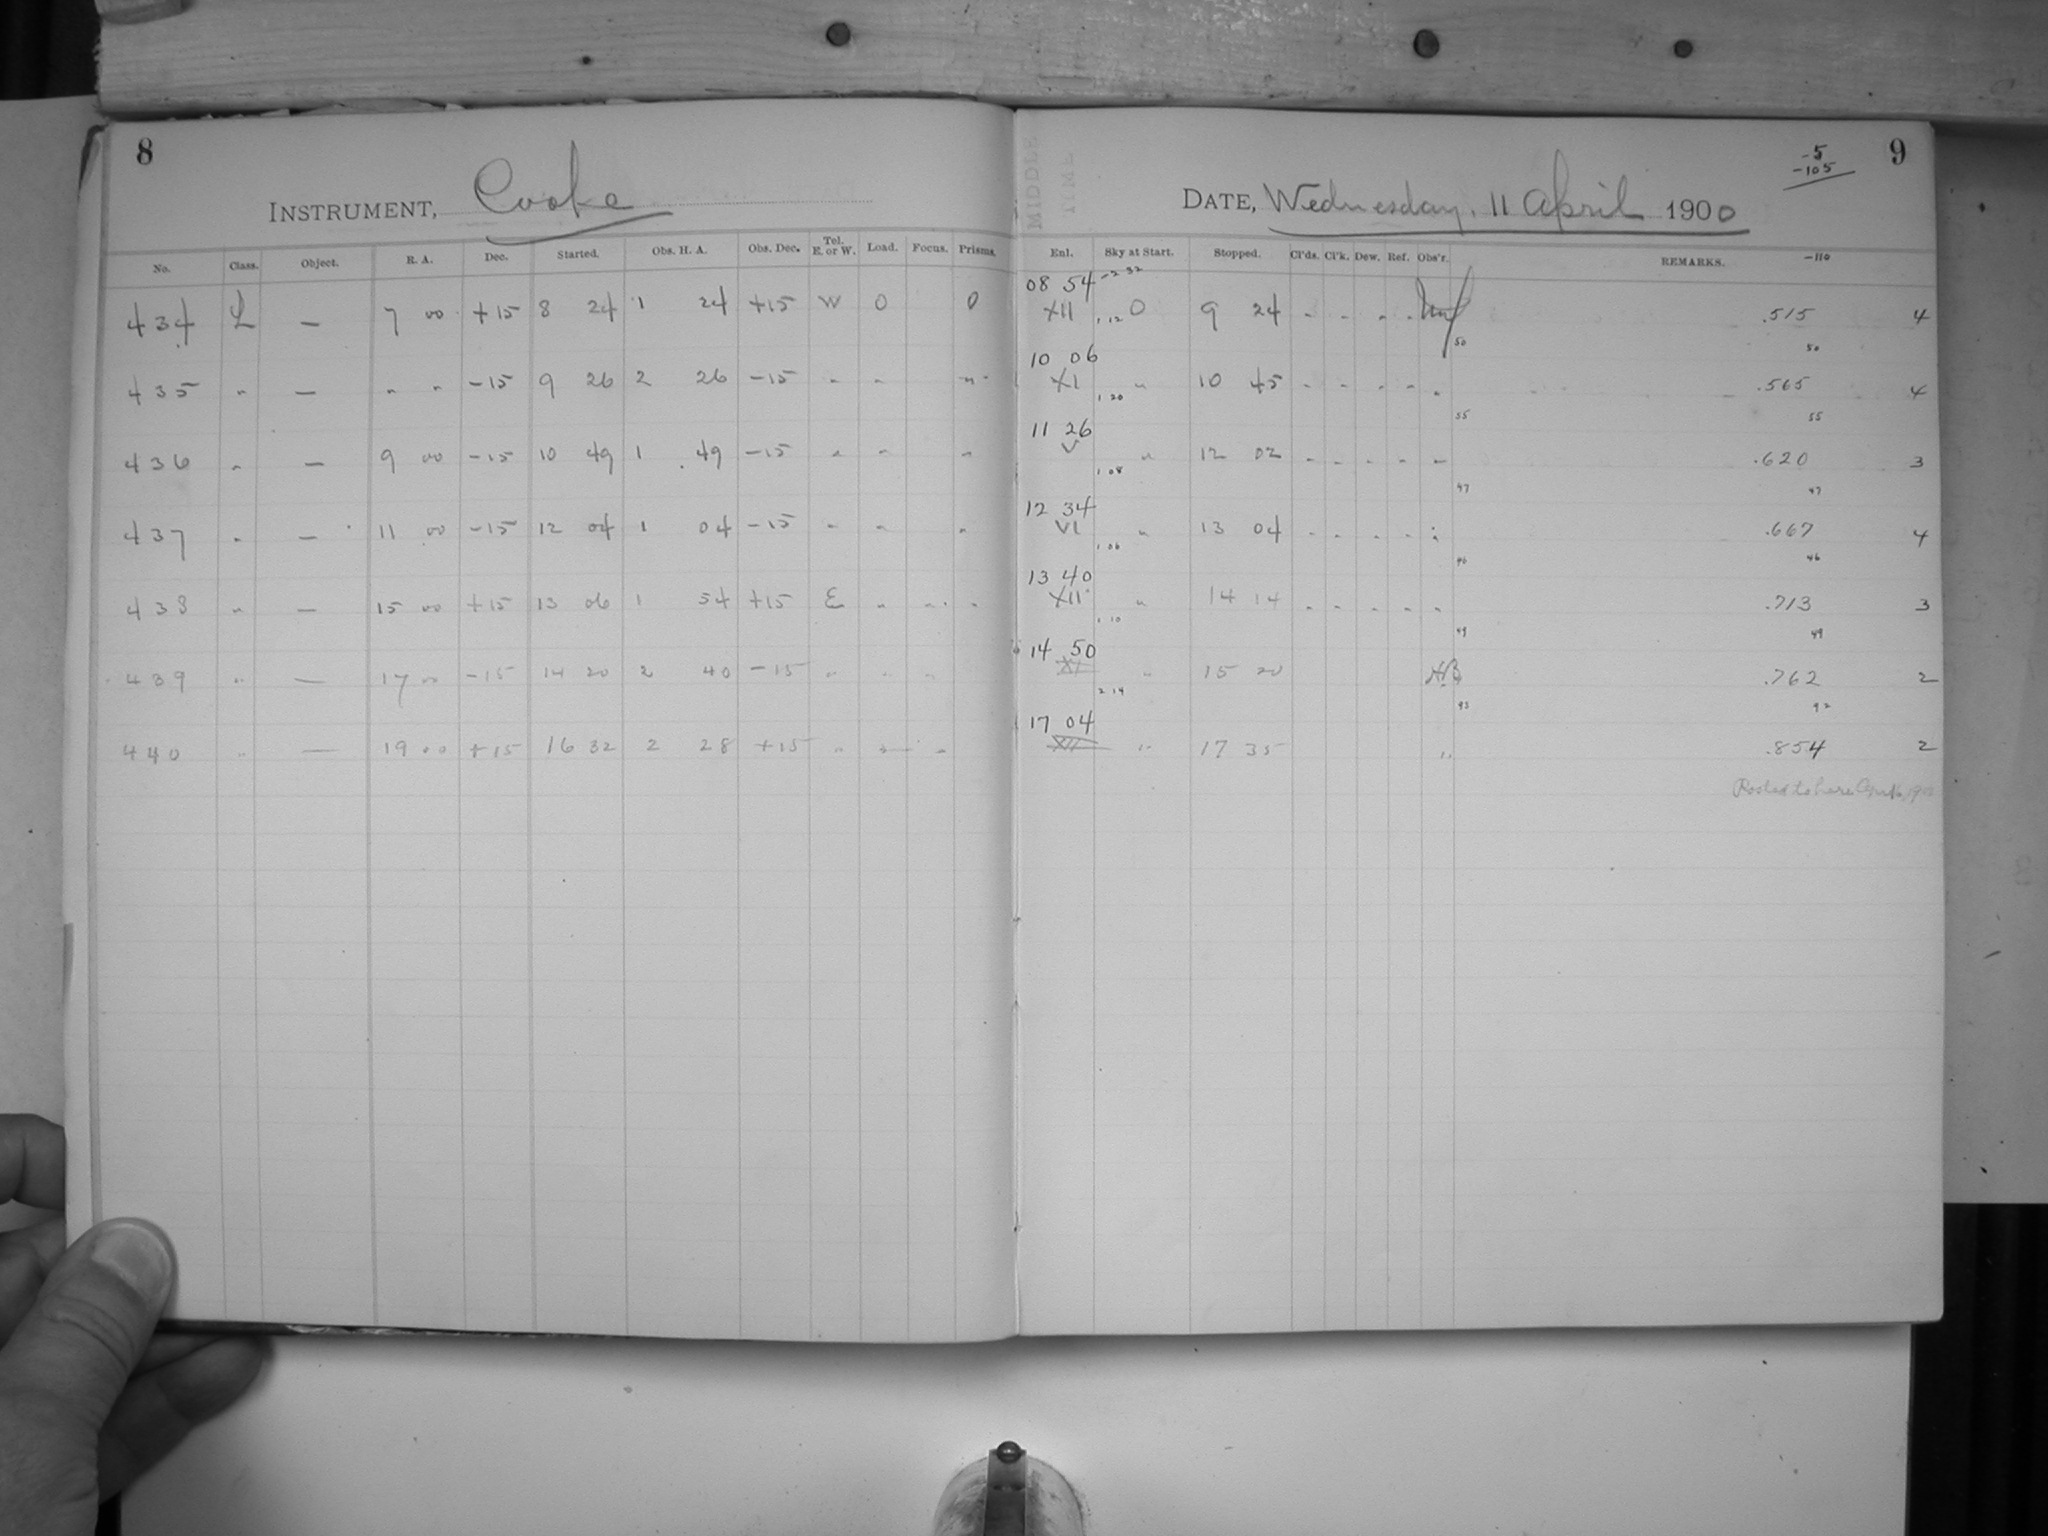 8
INSTRUMENT, Cooke
No. Class. Object. R. A. Dec. Started. Obs. H. A. Obs. Dec. Tel. E. or W. Load. Focus. Prisms.
434 L — 7 00 +15 8 24 1 24 +15 W 0 0
435 " — " " -15 9 26 2 26 -15 " " "
436 " — 9 00 -15 10 49 1 49 -15 " " "
437 " — 11 00 -15 12 04 1 04 -15 " " "
438 " — 15 00 +15 13 06 1 54 +15 E " " "
439 " — 17 00 -15 14 20 2 40 -15 " " "
440 " — 19 00 +15 16 32 2 28 +15 " " "
MIDDLE
TIME
-5
-105
9
DATE, Wednesday, 11 April 1900
Enl. Sky at Start. Stopped. Cl'ds. Cl'k. Dew. Ref. Obs'r. REMARKS. -110
08 54 -2 32
XII 0 9 24 - - - - .515 4
1 12 50 50
10 06
XI " 10 45 - - - - " .565 4
1 20 55 55
11 26
V " 12 02 - - - - - .620 3
1 08 47 47
12 34
VI " 13 04 - - - - " .667 4
1 06 46 46
13 40
XII " 14 14 - - - - " .713 3
1 10 49 49
14 50
XI " 15 20 .762 2
2 14 93 92
17 04
XII " 17 35 " .854 2
Posted to here 1900